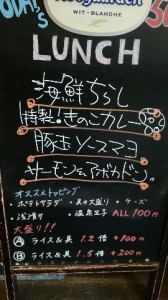 WIT-BLANCHE
LUNCH
海鮮ちらし
特製!きのこカレー
豚玉ソースマヨ
サーモン&アボカドン。
オススメトッピング
・ポテトサラダ ・具の大盛り ・チーズ
・浅漬け ・温泉玉子 ALL 100円
大盛り!!
A ライス&具 1.2倍 +100円
B ライス&具 1.5倍 +200円